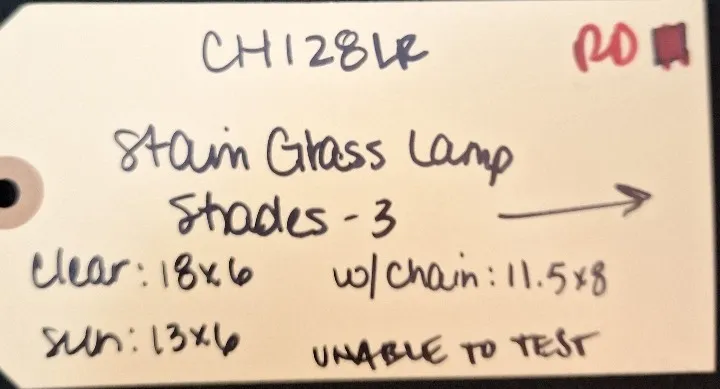 CH128LR RD
Stain Glass Lamp
Shades - 3
Clear: 18x6 w/ Chain: 11.5x8
Sun: 13x6 UNABLE TO TEST